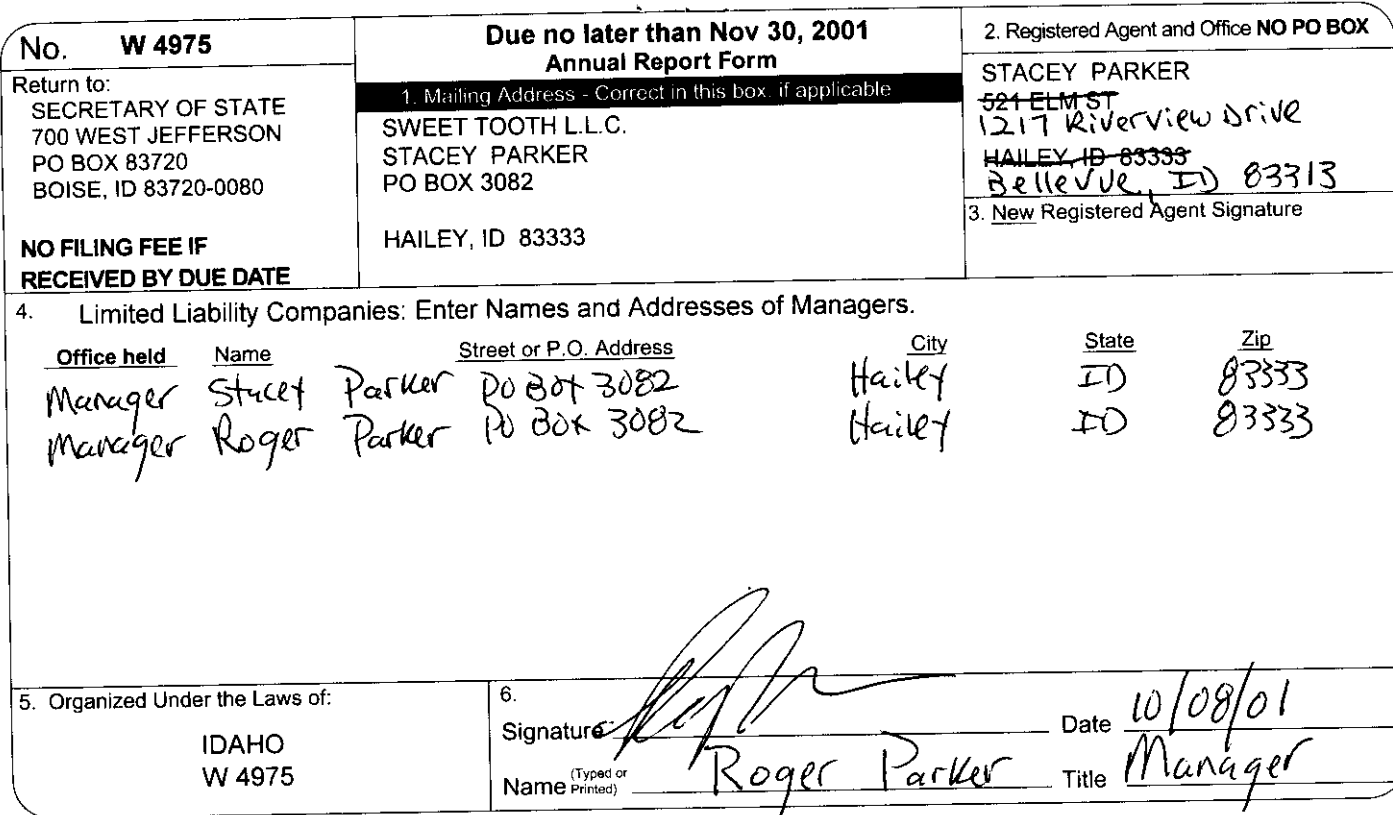 No. W 4975
Return to:
SECRETARY OF STATE
700 WEST JEFFERSON
PO BOX 83720
BOISE, ID 83720-0080
NO FILING FEE IF
RECEIVED BY DUE DATE
Due no later than Nov 30, 2001
Annual Report Form
1. Mailing Address - Correct in this box, if applicable
SWEET TOOTH L.L.C.
STACEY PARKER
PO BOX 3082
HAILEY, ID 83333
2. Registered Agent and Office NO PO BOX
STACEY PARKER
521 ELM ST
1217 Riverview Drive
HAILEY, ID 83333
Bellevue, ID 83313
3. New Registered Agent Signature
4. Limited Liability Companies: Enter Names and Addresses of Managers.
Office held Name Street or P.O. Address City State Zip
Manager Stacey Parker PO Box 3082 Hailey ID 83333
Manager Roger Parker PO Box 3082 Hailey ID 83333
5. Organized Under the Laws of:
IDAHO
W 4975
6.
Signature Date 10/08/01
Name (Typed or Printed) Roger Parker Title Manager